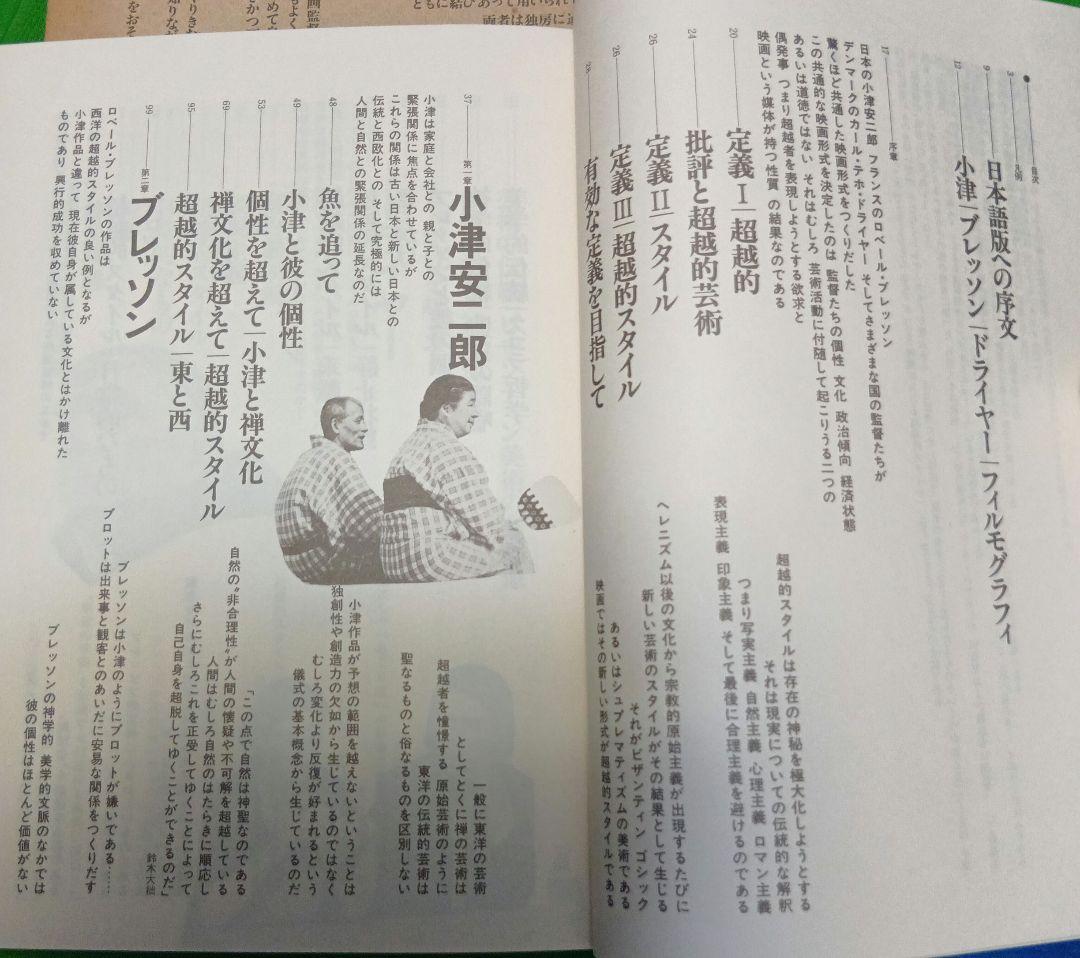 目次
3 凡例
9 日本語版への序文
12 小津|ブレッソン|ドライヤー|フィルモグラフィ
17 序章
日本の小津安二郎 フランスのロベール・ブレッソン
デンマークのカール・テホ・ドライヤー そしてさまざまな国の監督たちが
驚くほど共通した映画形式をつくりだした
この共通的な映画形式を決定したのは 監督たちの個性 文化 政治傾向 経済状態
あるいは道徳ではない それはむしろ 芸術活動に付随して起こりうる二つの
偶発事 つまり超越者を表現しようとする欲求と
映画という媒体が持つ性質 の結果なのである
20 定義Ⅰ|超越的
24 批評と超越的芸術
26 定義Ⅱ|スタイル
26 定義Ⅲ|超越的スタイル
28 有効な定義を目指して
超越的スタイルは存在の神秘を極大化しようとする
それは現実についての伝統的な解釈
つまり写実主義 自然主義 心理主義 ロマン主義
表現主義 印象主義 そして最後に合理主義を避けるのである
ヘレニズム以後の文化から宗教的原始主義が出現するたびに
新しい芸術のスタイルがその結果として生じる
それがビザンティン ゴシック
あるいはシュプレマティズムの美術である
映画ではその新しい形式が超越的スタイルである
37 第一章 小津安二郎
小津は家庭と会社との 親と子との
緊張関係に焦点を合わせているが
これらの関係は古い日本と新しい日本との
伝統と西欧化との そして究極的には
人間と自然との緊張関係の延長なのだ
48 魚を追って
49 小津と彼の個性
53 個性を超えて|小津と禅文化
69 禅文化を超えて|超越的スタイル
95 超越的スタイル|東と西
一般に東洋の芸術
としてとくに禅の芸術は
超越者を憧憬する 原始芸術のように
東洋の伝統的芸術は
聖なるものと俗なるものを区別しない
小津作品が予想の範囲を越えないということは
独創性や創造力の欠如から生じているのではなく
むしろ変化より反復が好まれるという
儀式の基本概念から生じているのだ
「この点で自然は神聖なのである
自然の“非合理性”が人間の懐疑や不可解を超越している
人間はむしろ自然のはたらきに順応し
さらにむしろこれを正受してゆくことによって
自己自身を超脱してゆくことができるのだ」
鈴木大拙
99 第二章 ブレッソン
ロベール・ブレッソンの作品は
西洋の超越的スタイルの良い例となるが
小津作品と違って 現在彼自身が属している文化とはかけ離れた
ものであり 興行的成功を収めていない
ブレッソンは小津のようにプロットが嫌いである……
プロットは出来事と観客とのあいだに安易な関係をつくりだす
ブレッソンの神学的 美学的文脈のなかでは
彼の個性はほとんど価値がない